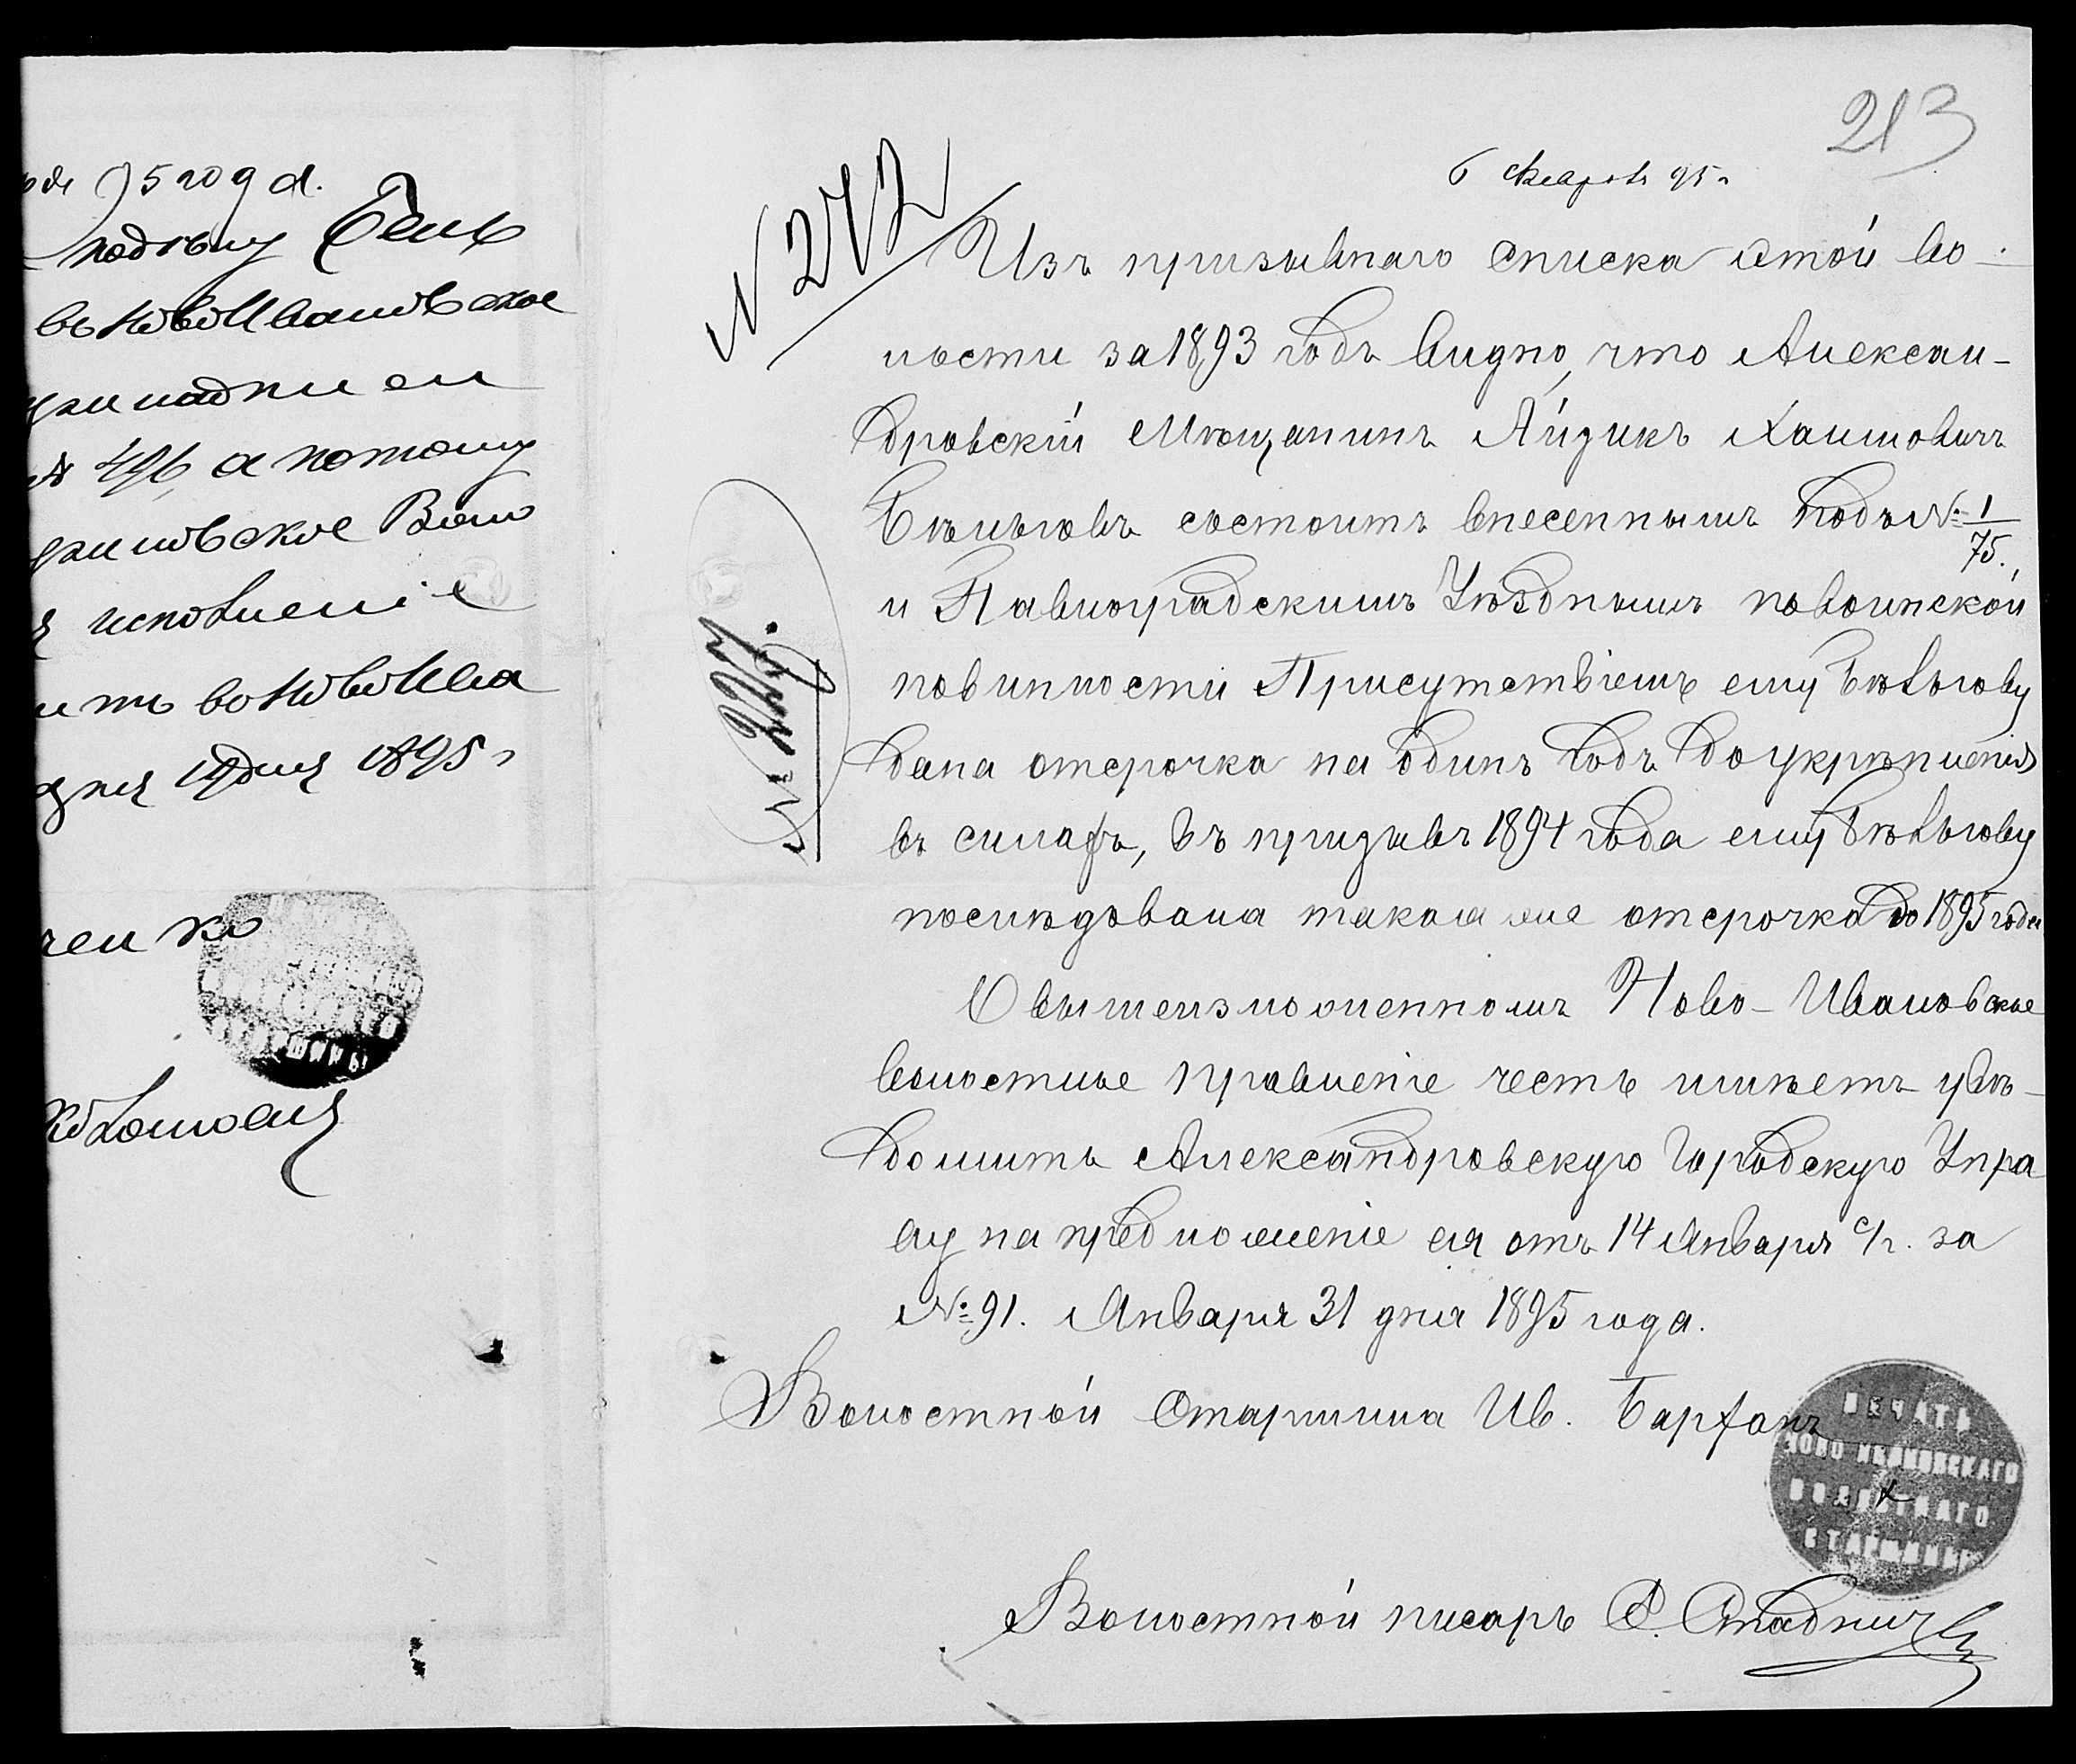 213
6 Февраля 95 г
N 272
Изъ призывнаго списка этой во-
лости за 1893 годъ видно, что Алексан-
дровскій Мѣщанинъ Айзикъ Хаимовичъ
Бѣлыговъ состоитъ внесеннымъ подъ № 1/75.,
и Павлоградскимъ Уѣзднымъ по воинской
повинности Присутствіемъ ему Бѣлыгову
дана отсрочка на одинъ годъ до укрѣпленія
въ силахъ, въ призывъ 1894 года ему Бѣлыгову
послѣдовала такая же отсрочка до 1895 года
О вышеизложенномъ Ново-Ивановское
волостное правленіе честь имѣетъ увѣ-
домить Александровскую Городскую Упра
ву на предложеніе ея отъ 14 Января с/г. за
№ 91. Января 31 дня 1895 года.
Волостной Старшина Ив. Барханъ
ПЕЧАТЬ
НОВО ИВАНОВСКАГО
ВОЛОСТНАГО
СТАРШИНЫ
Волостной писарь
95 года.
въ Ново Ивановское
496, а потому
исполненіе
дня 1895 г
ченко